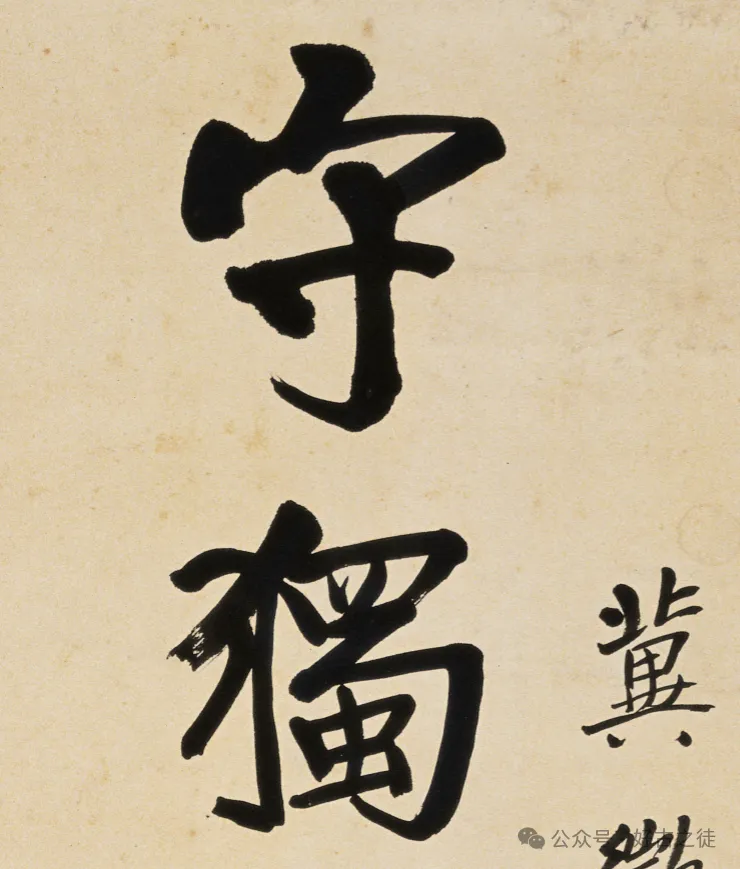 冀
守獨
公众号 · 好古之徒